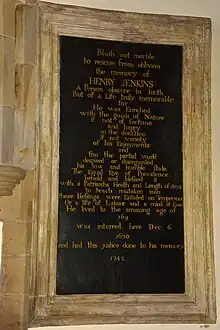 Blush not marble
to rescue from oblivion
the memory of
HENRY JENKINS
A Person obscure in birth
But of a Life truly memorable
for
He was Enriched
with the goods of Nature
if not of fortune
and happy
in the duration
if not variety
of his Enjoyments
and
tho the partial world
despised or disregarded
his low and humble State
The Equal Eye of Providence
beheld and blessed it
with a Patriarchs Health and Length of days
to teach mistaken man
these Blessings were Entailed on Temperance
Or a life of Labour and a mind at Ease
He lived to the amazing age of
169
was interred here Dec 6
1670
and had this justice done to his memory
1743